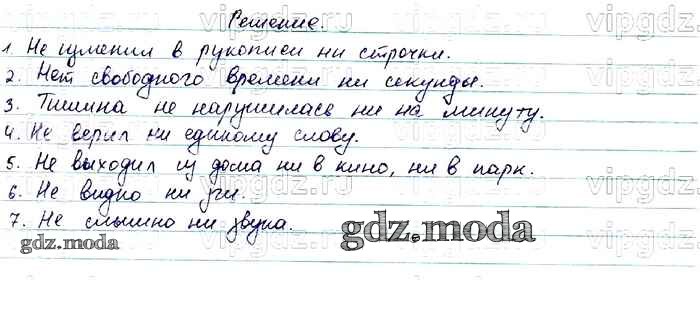 Решение.
1. Не изменил в рукописи ни строчки.
2. Нет свободного времени ни секунды.
3. Тишина не нарушилась ни на минуту.
4. Не верил ни единому слову.
5. Не выходил из дома ни в кино, ни в парк.
6. Не видно ни зги.
7. Не слышно ни звука.
gdz.moda
gdz.moda
vipgdz.ru